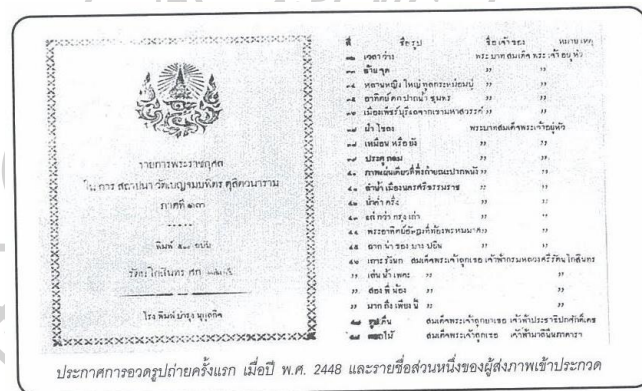 รายการพระราชกุศล
ใน การ สถาปนา วัดเบญจมบพิตร ดุสิตวนาราม
ภาคที่ ๑๓
พิมพ์ ๕๐๐ ฉบับ
รัตนโกสินทร ศก
โรงพิมพ์บำรุงนุกูลกิจ
ที่ ชื่อรูป ชื่อเจ้าของ หมายเหตุ
เวลาว่าง พระบาทสมเด็จพระเจ้าอยู่หัว
๓๓ ด้ายชุด ,, ,,
๓๔ หลานหญิงใหญ่ทูลกระหม่อมปู่ ,, ,,
๓๕ อาทิตย์ตกปากน้ำชุมพร ,, ,,
๓๖ เมืองเพ็ชร์บุรีแลจากเขามหาสวรรค์ ,, ,,
๓๗ น้ำไหลลง พระบาทสมเด็จพระเจ้าอยู่หัว
๓๘ เหมือนหรือยัง ,, ,,
๓๙ ประตูกลม ,, ,,
๔๐ ภาพแผ่นเดียวที่ถ่ายขณะปากพนัง ,, ,,
๔๑ ลำน้ำเมืองนครศรีธรรมราช ,, ,,
๔๒ น้ำค้าง ,, ,,
๔๓ แก่กว่ากรุงเก่า ,, ,,
๔๔ พระอาทิตย์ ,,
๔๕ ฉากน้ำของบางปอิน ,, ,,
๔๖ เกาะรังนก สมเด็จพระเจ้าลูกเธอ เจ้าฟ้ากรมหลวงศรีรัตนโกสินทร
,, เส้นน้ำเพคะ ,, ,,
,, สองพี่น้อง ,, ,,
,, มากถึงเพียงนี้ ,, ,,
สมเด็จพระเจ้าลูกยาเธอ เจ้าฟ้าประชาธิปกศักดิเดช
สมเด็จพระเจ้าลูกเธอ เจ้าฟ้ามาลินีนภดารา
ประกาศการอวดรูปถ่ายครั้งแรก เมื่อปี พ.ศ. 2448 และรายชื่อส่วนหนึ่งของผู้ส่งภาพเข้าประกวด